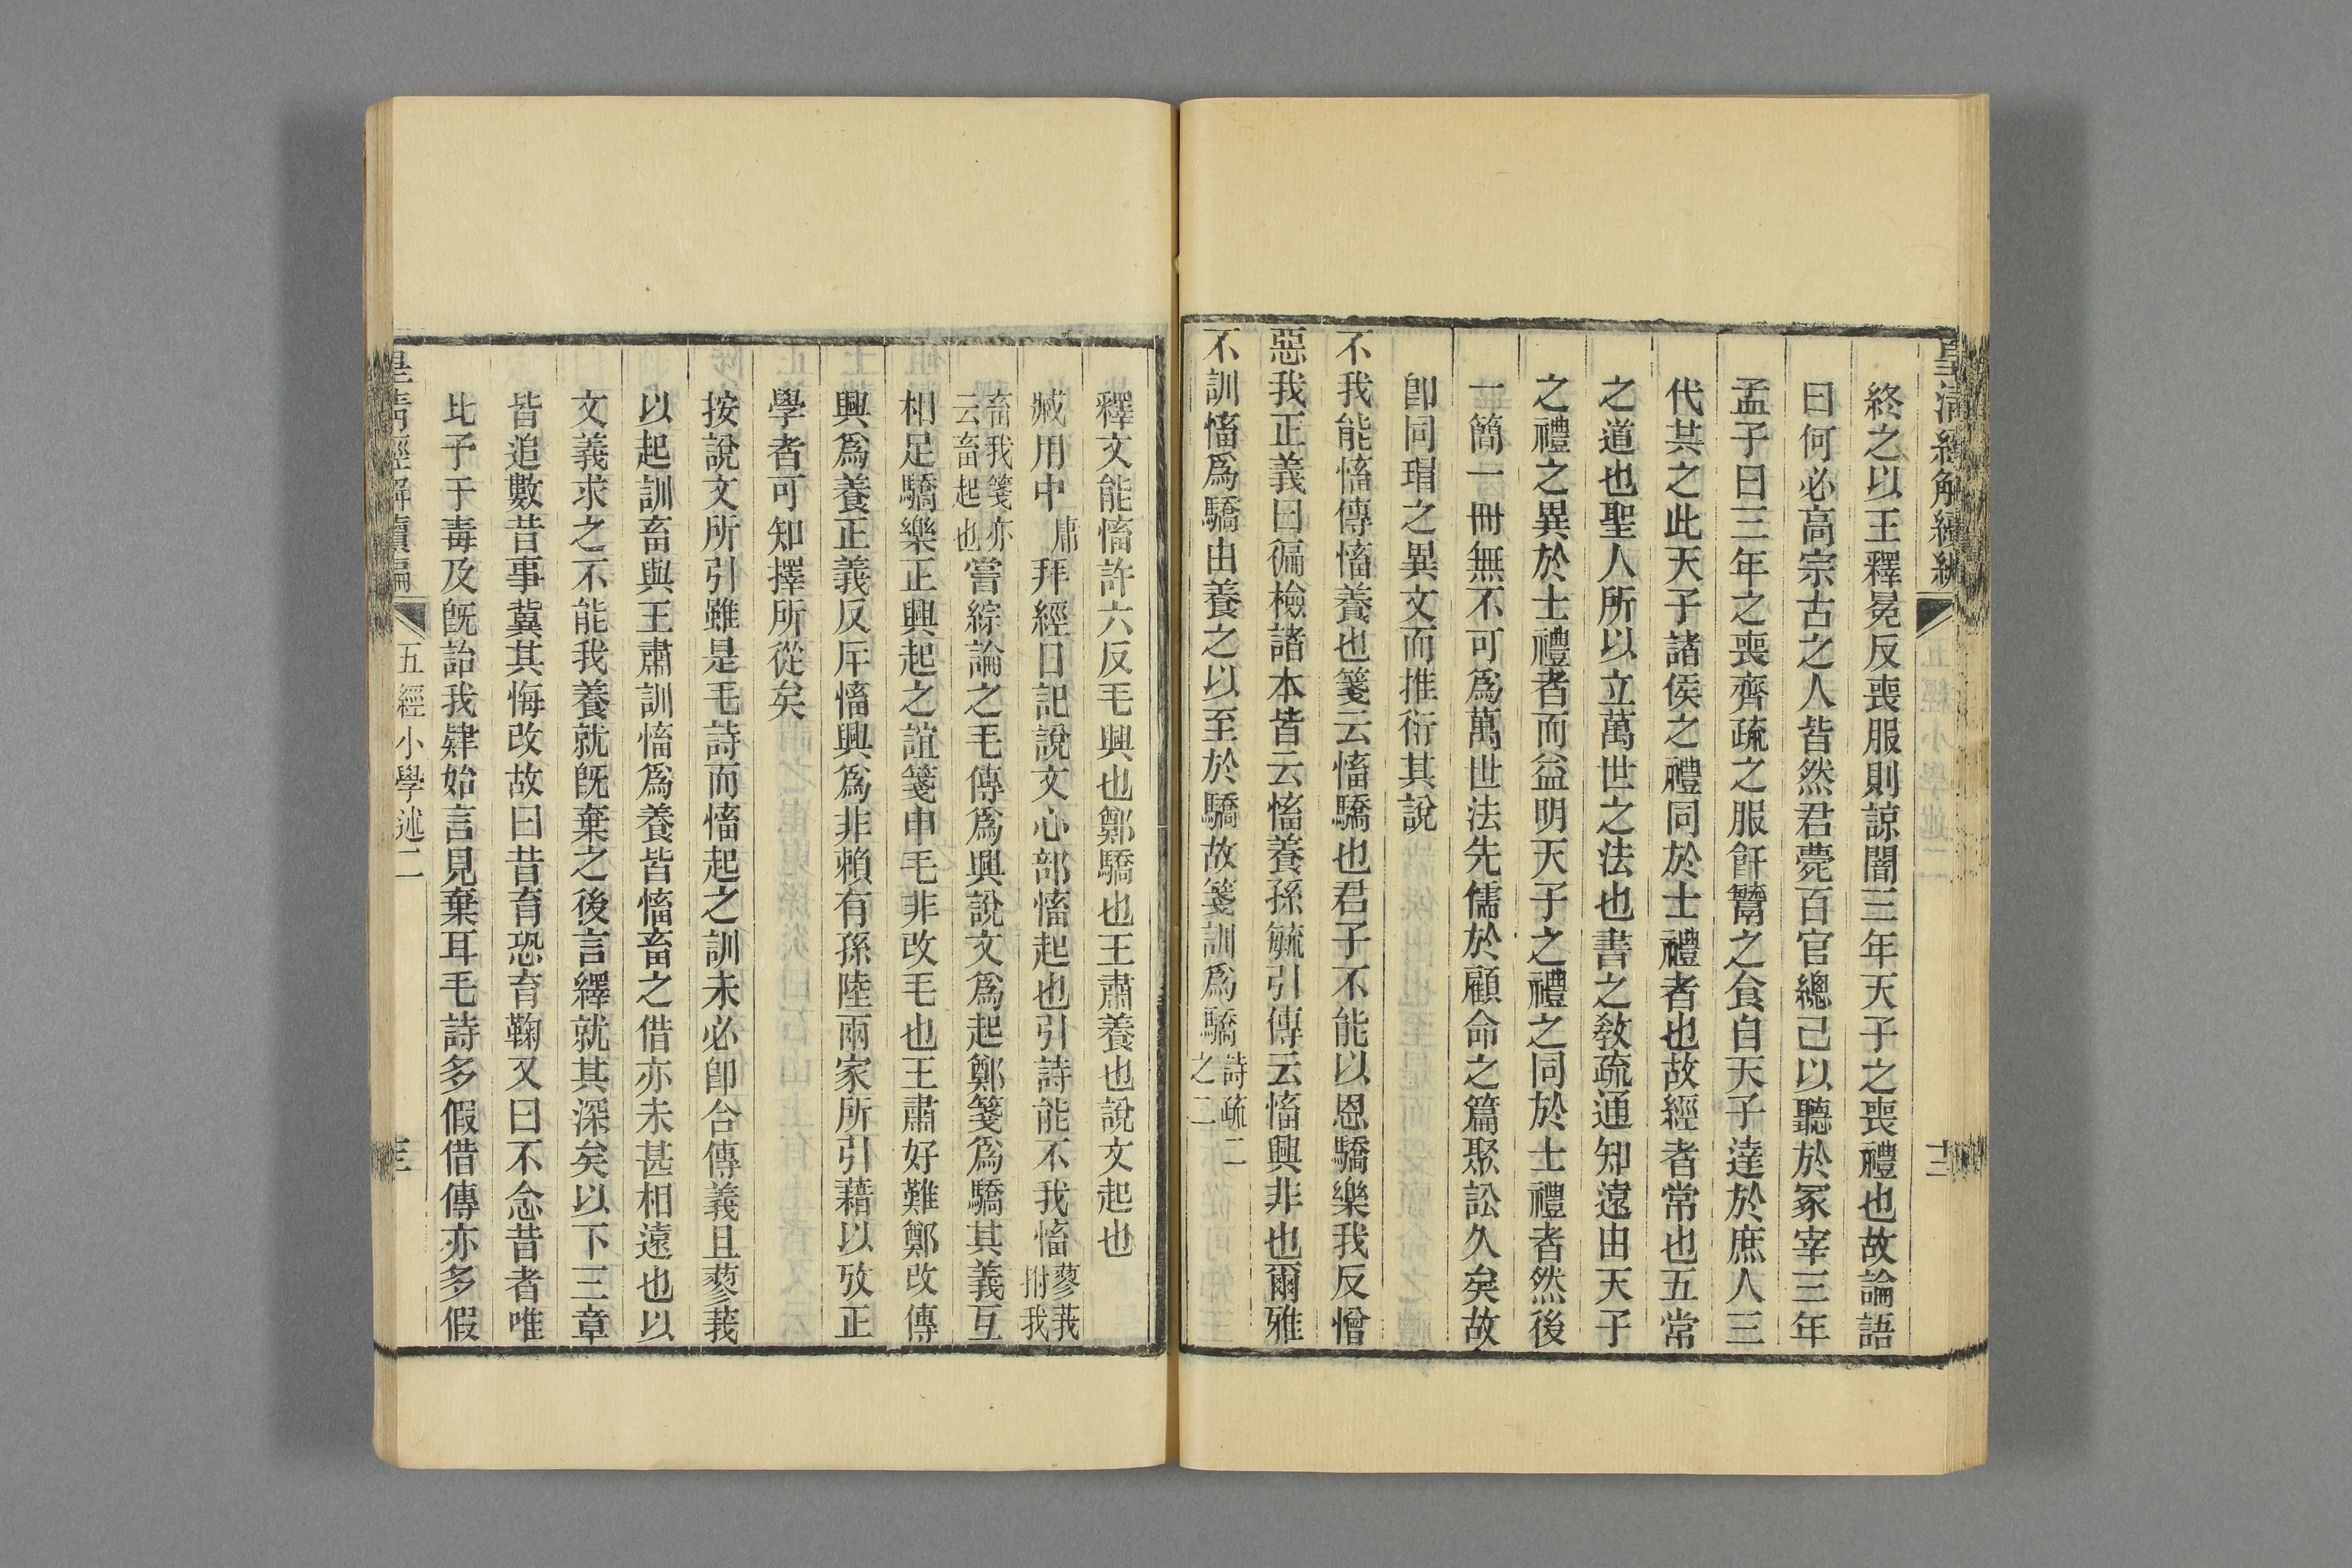 皇清經解續編
十三
終之以王釋冕反喪服則諒闇三年天子之喪禮也故論語
曰何必高宗古之人皆然君薨百官總己以聽於冢宰三年
孟子曰三年之喪齊疏之服飦鬻之食自天子達於庶人三
代其之此天子諸侯之禮同於士禮者也故經者常也五常
之道也聖人所以立萬世之法也書之敎疏通知遠由天子
之禮之異於士禮者而益明天子之禮之同於士禮者然後
一簡一冊無不可爲萬世法先儒於顧命之篇聚訟久矣故
卽同瑁之異文而推衍其說
不我能慉傳慉養也箋云慉驕也君子不能以恩驕樂我反憎
惡我正義曰徧檢諸本皆云慉養孫毓引傳云慉興非也爾雅
不訓慉爲驕由養之以至於驕故箋訓爲驕詩疏二之二
釋文能慉許六反毛興也鄭驕也王肅養也說文起也
臧用中庸拜經日記說文心部慉起也引詩能不我慉蓼莪拊我
畜我箋亦云畜起也嘗綜論之毛傳爲興說文爲起鄭箋爲驕其義互
相足驕樂正興起之誼箋申毛非改毛也王肅好難鄭改傳
興爲養正義反斥慉興爲非賴有孫陸兩家所引藉以攷正
學者可知擇所從矣
按說文所引雖是毛詩而慉起之訓未必卽合傳義且蓼莪
以起訓畜與王肅訓慉爲養皆慉畜之借亦未甚相遠也以
文義求之不能我養就旣棄之後言繹就其深矣以下三章
皆追數昔事冀其悔改故曰昔育恐育鞠又曰不念昔者唯
比予于毒及旣詒我肄始言見棄耳毛詩多假借傳亦多假
皇淸經解續編
五經小學述二
十三